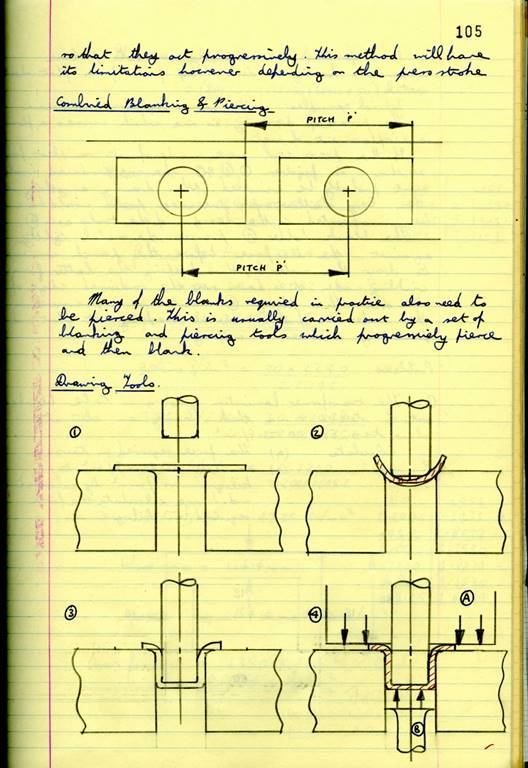 105
so that they act progressively. This method will have
its limitations however depending on the press stroke
Combined Blanking & Piercing
PITCH "P"
PITCH "P"
Many of the blanks required in practice also need to
be pierced. This is usually carried out by a set of
blanking and piercing tools which progressively pierce
and then blank.
Drawing Tools.
1
2
3
4
A
B